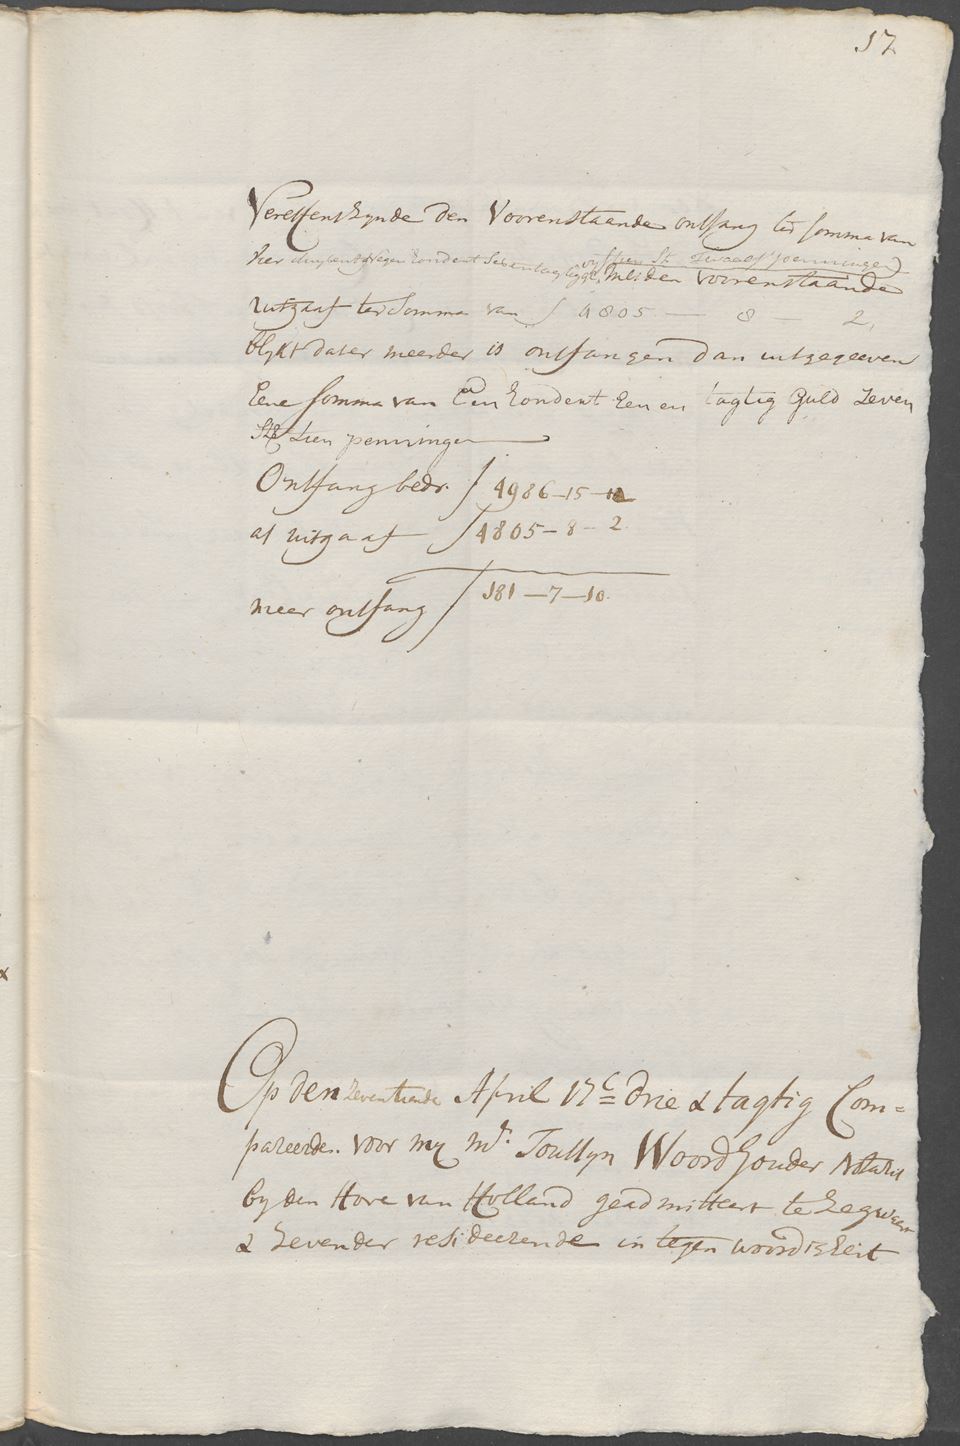 17
Vereffent zynde den Voorenstaande ontfang ter somma van
vier duyzent Negen hondert Sesentagtigge
vyftien St. twaalf penningen)
met den voorenstaande
uitgaaf ter Somma van ƒ 4805 — 8 — 2,
blykt dater meerder is ontfangen dan uitgegeeven
Eene somma van Een hondert Een en tagtig Guld Zeven
St tien penningen
Ontfang bedr. ƒ 4986-15-12
al uitgaaf ƒ 4805-8-2
meer ontfang ƒ 181-7-10.
Op den zeventiende April 17c drie & tagtig Com=
pareerde voor my mr. Joullyn Woordhouder Notaris
by den Hove van Holland geadmitteert te Zegwaart
& Zevender resideerende in tegenwoordigheit